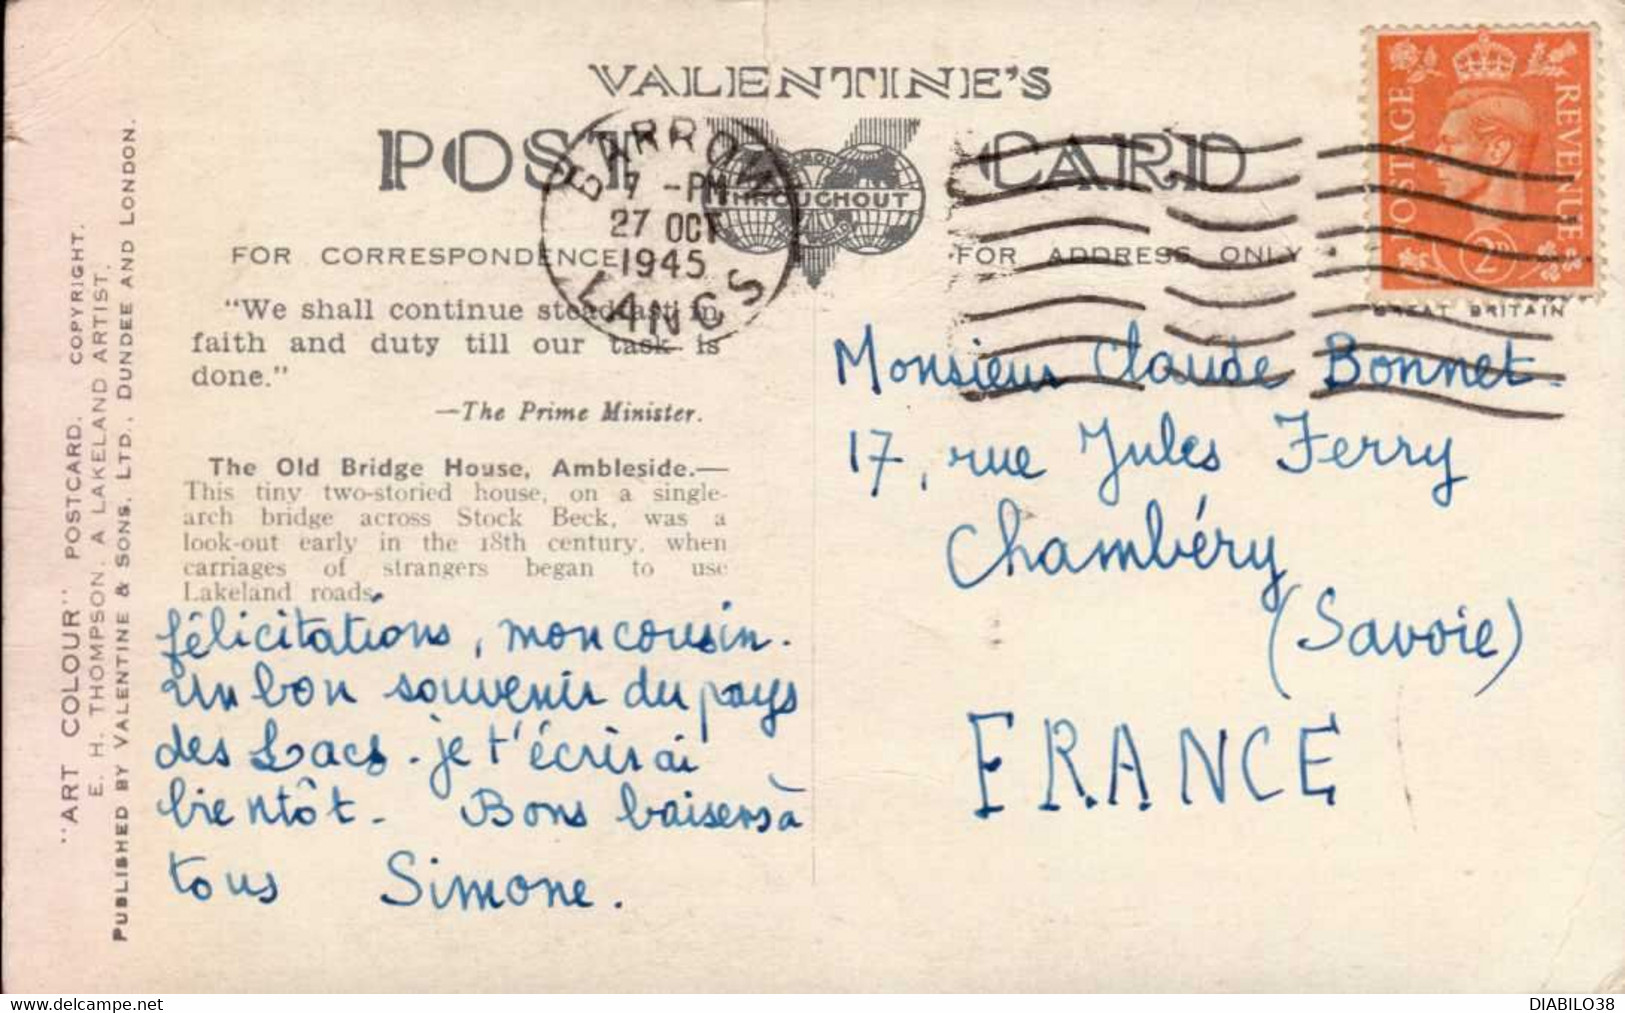 VALENTINE'S
POST CARD
THROUGHOUT
BARROW
7 - PM
27 OCT
1945
LANCS
POSTAGE REVENUE
2D
FOR CORRESPONDENCE
FOR ADDRESS ONLY
GREAT BRITAIN
"We shall continue steadfast in
faith and duty till our task is
done."
—The Prime Minister.
The Old Bridge House, Ambleside.—
This tiny two-storied house, on a single-
arch bridge across Stock Beck, was a
look-out early in the 18th century, when
carriages of strangers began to use
Lakeland roads.
félicitations, mon cousin.
un bon souvenir du pays
des Lacs. je t'écrirai
bientôt. Bons baisers à
tous Simone.
Monsieur Claude Bonnet.
17, rue Jules Ferry
Chambéry
(Savoie)
FRANCE
"ART COLOUR" POSTCARD. COPYRIGHT.
E. H. THOMPSON, A LAKELAND ARTIST.
PUBLISHED BY VALENTINE & SONS, LTD., DUNDEE AND LONDON.
www.delcampe.net
DIABILO38